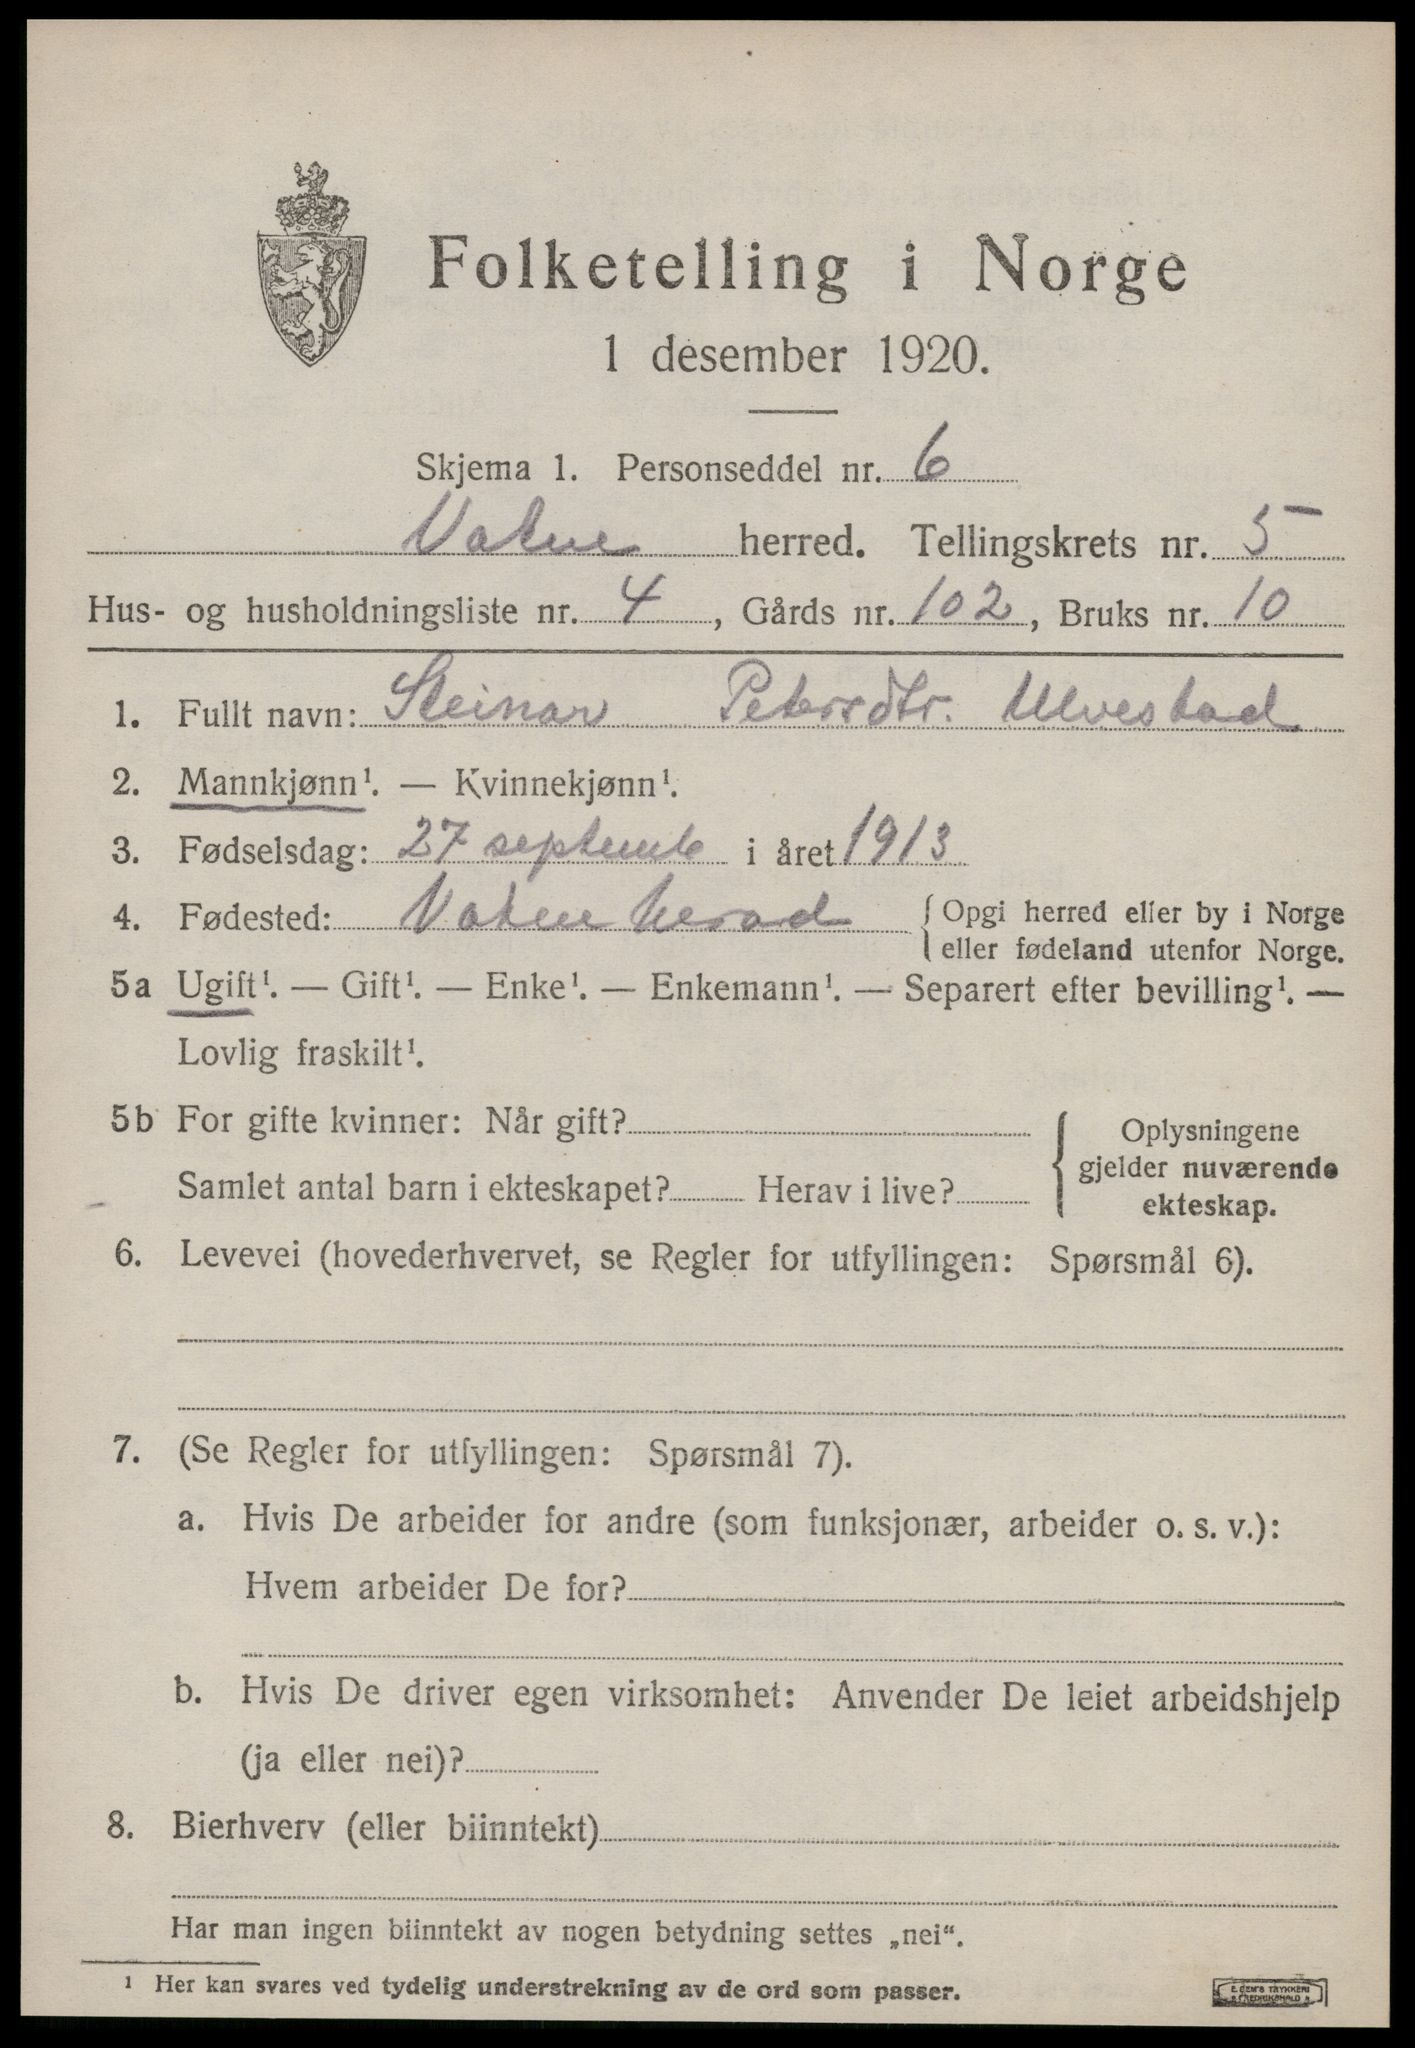 Folketelling i Norge
1 desember 1920.
Skjema 1. Personseddel nr. 6
Vatne herred. Tellingskrets nr. 5
Hus- og husholdningsliste nr. 4, Gårds nr. 102, Bruks nr. 10
1. Fullt navn: Steinar Petersdtr. Ulvestad
2. Mannkjønn¹. — Kvinnekjønn¹.
3. Fødselsdag: 27 septemb i året 1913
4. Fødested: Vatne herad { Opgi herred eller by i Norge
eller fødeland utenfor Norge.
5a Ugift¹. — Gift¹. — Enke¹. — Enkemann¹. — Separert efter bevilling¹. —
Lovlig fraskilt¹.
5b For gifte kvinner: Når gift? { Oplysningene
gjelder nuværende
Samlet antal barn i ekteskapet? Herav i live? ekteskap.
6. Levevei (hovederhvervet, se Regler for utfyllingen: Spørsmål 6).
7. (Se Regler for utfyllingen: Spørsmål 7).
a. Hvis De arbeider for andre (som funksjonær, arbeider o. s. v.):
Hvem arbeider De for?
b. Hvis De driver egen virksomhet: Anvender De leiet arbeidshjelp
(ja eller nei)?
8. Bierhverv (eller biinntekt)
Har man ingen biinntekt av nogen betydning settes „nei“.
¹ Her kan svares ved tydelig understrekning av de ord som passer.
E. SEM'S TRYKKERI
FREDRIKSHALD